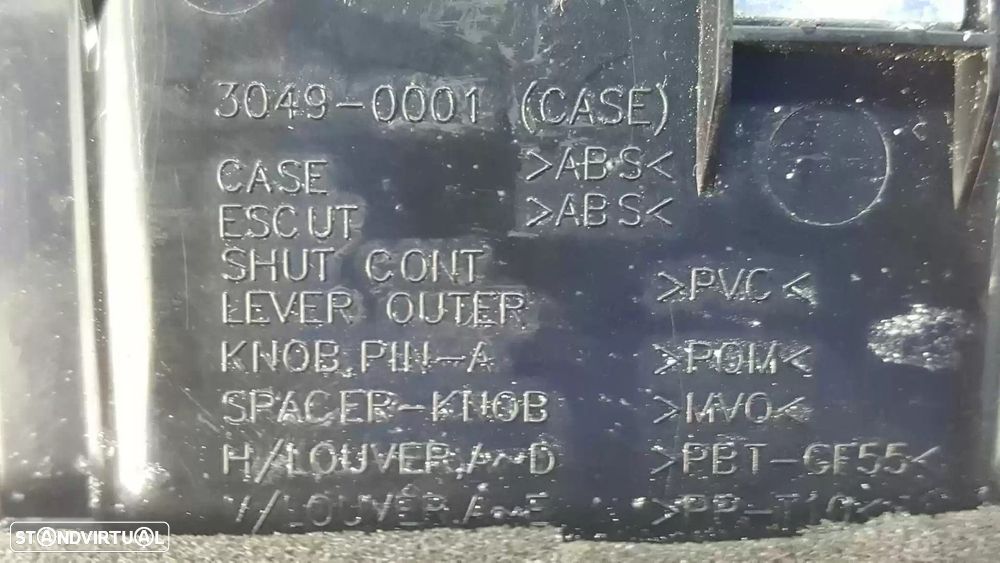 3049-0001 (CASE)
CASE >ABS<
ESCUT >ABS<
SHUT CONT
LEVER OUTER >PVC<
KNOB, PIN-A >POM<
SPACER-KNOB >MVQ<
H/LOUVER, A~D >PBT-GF55<
V/LOUVER, A~E >PP-T10<
STANDVIRTUAL